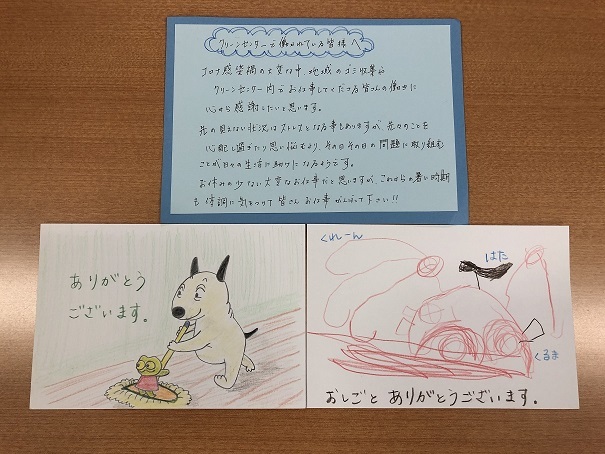 クリーンセンターで働かれている皆様へ
コロナ感染禍の大変な中、地域のゴミ収集や
クリーンセンター内でお仕事してくださる皆さんの働きに
心から感謝したいと思います。
先の見えない状況はストレスとなる事もありますが先々のことを
心配し過ぎたり思い悩むより、その日その日の問題に取り組む
ことが日々の生活に助けになるようです。
お休みの少ない大変なお仕事だと思いますが、これからの暑い時期
も体調に気をつけて皆さんお仕事がんばって下さい!!
ありがとう
ございます。
くれーん
はた
くるま
おしごと ありがとうございます。